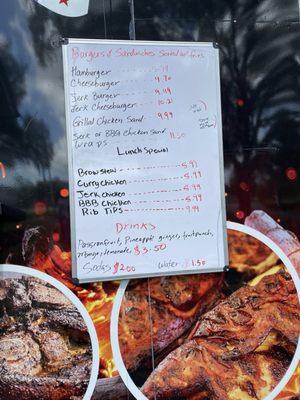 Burgers & Sandwiches Served w/ fries
Hamburger
Cheeseburger 9.70
Jerk Burger 9.49
Jerk Cheeseburger 10.21
Grilled Chicken Sand 9.99
Jerk or BBQ Chicken Sand 11.50
Wraps
Lunch Special
Brow Stew 5.99
Curry chicken 5.99
Jerk chicken 5.99
BBB Chicken 5.99
Rib Tips 9.99
Drinks
Passionfruit, Pineapple ginger, fruitpunch,
orange, lemonade, $3.50
Sodas $2.00 Water 1.50